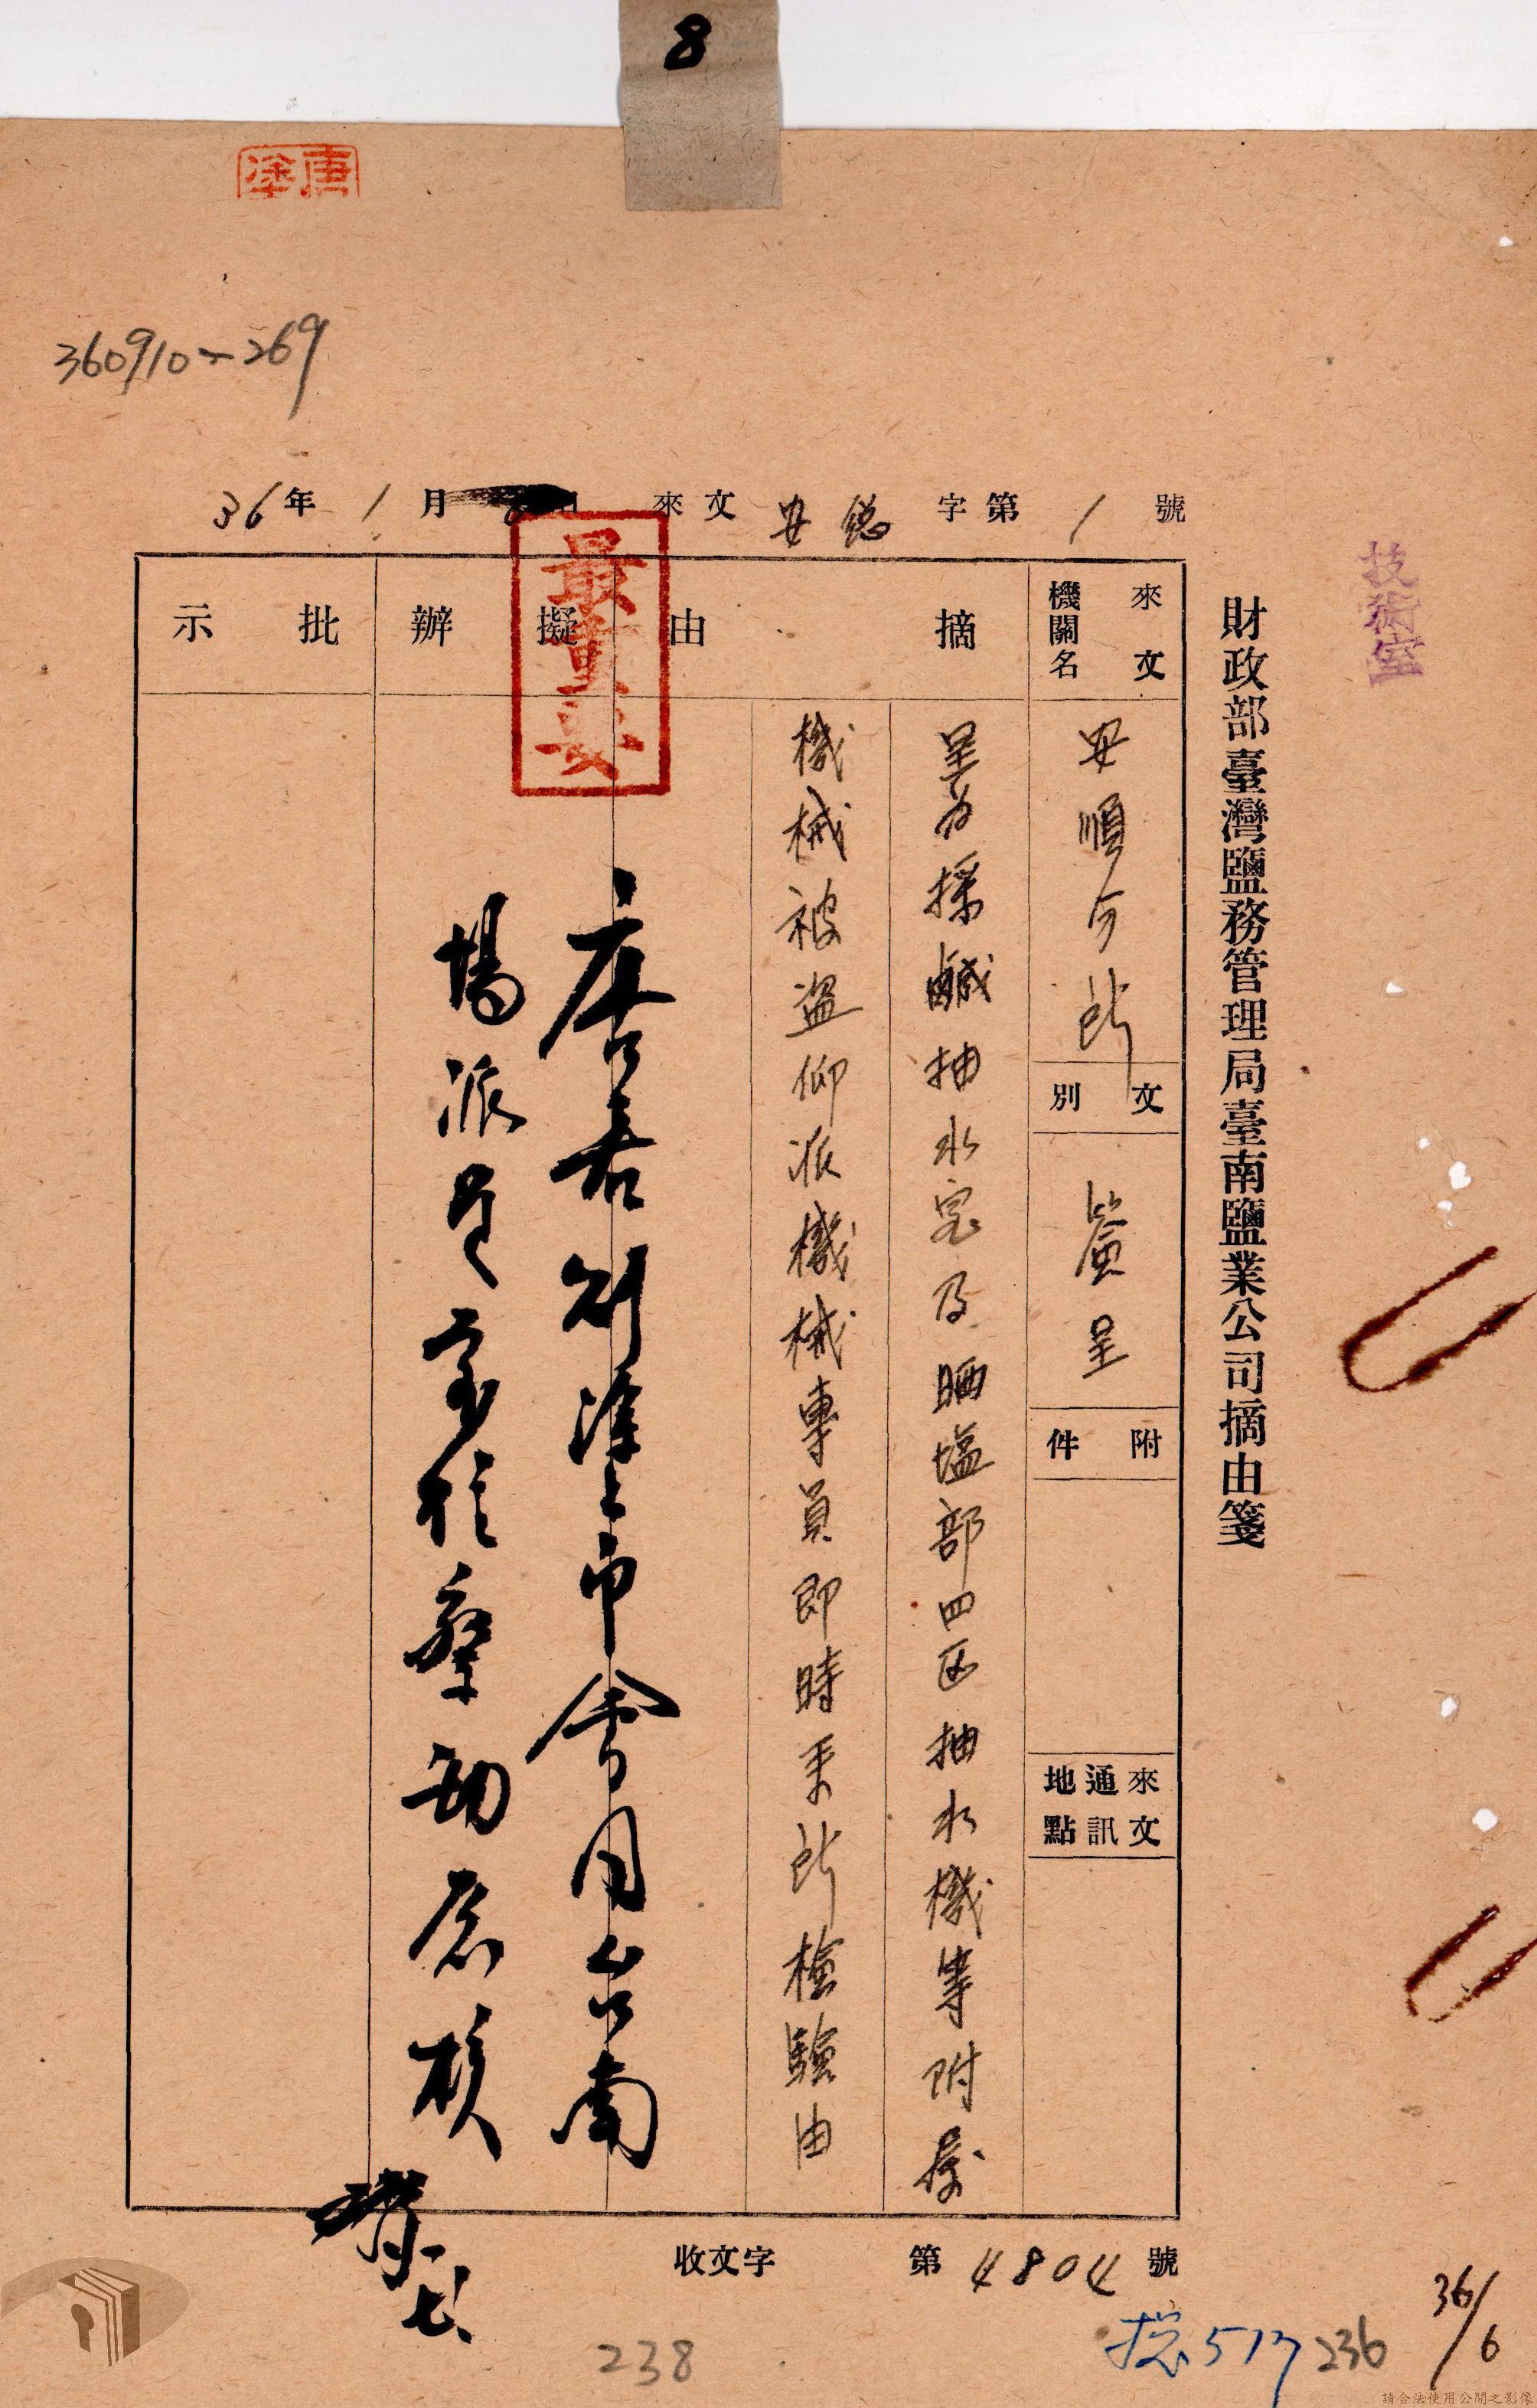 8
唐塗
360910-269
36年1月 日 來文 安總 字第 1 號
最重要
技術室
財政部臺灣鹽務管理局臺南鹽業公司摘由箋
來文機關名
安順分所
文別
簽呈
附件
來文通訊地點
摘由
呈為採鹹抽水室及晒塩部四区抽水机等附屬
機械被盜仰派機械專員即時來所檢驗由
擬辦
唐君
會同台南
場派員
核
批示
收文字 第 4804 號
238
总517
236
36/6
請合法使用公開之影像